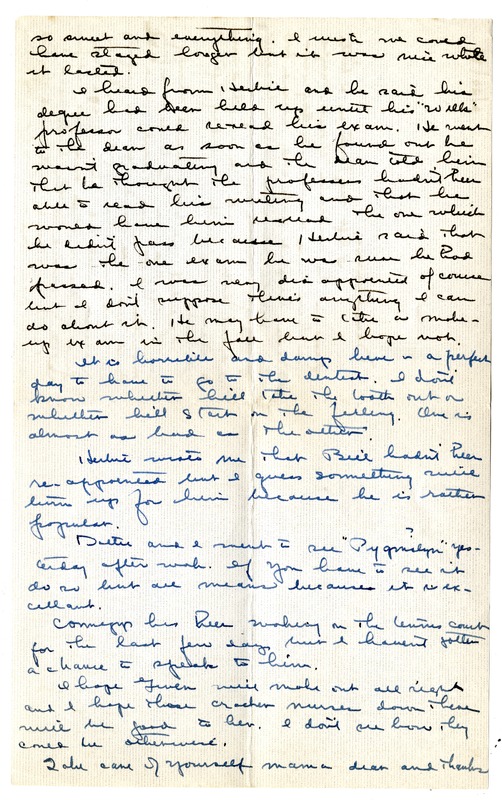 so sweet and everything. I wish we could
have stayed longer but it was nice while
it lasted.
I heard from Herbie and he said his
degree had been held up until his "Wills"
professor could reread his exam. He went
to the dean as soon as he found out he
wasn't graduating and the dean told him
that he thought the professors hadn't been
able to read his writing and that he
would have him reread the one which
he didn't pass because Herbie said that
was the one exam he was sure he had
passed. I was very disappointed of course
but I don't suppose there's anything I can
do about it. He may have to take a make-
up exam in the fall but I hope not.
It is horrible and damp here - a perfect
day to have to go to the dentist. I don't
know whether he'll take the tooth out or
whether he'll start on the filling. One is
almost as bad as the other.
Herbie wrote me that Bill hadn't been
re-appointed but I guess something will
turn up for him because he is rather
popular.
and I went to see "Pygmalyn"? yes-
terday after work. If you have to see it
do so but all means because it is ex-
cellent.
Comegys has been working on the tennis court
for the last few days but I haven't gotten
a chance to speak to him.
I hope Gwen will make out all right
and I hope those cracker nurses down there
will be good to her. I don't see how they
could be otherwise.
Take care of yourself mama dear and thanks